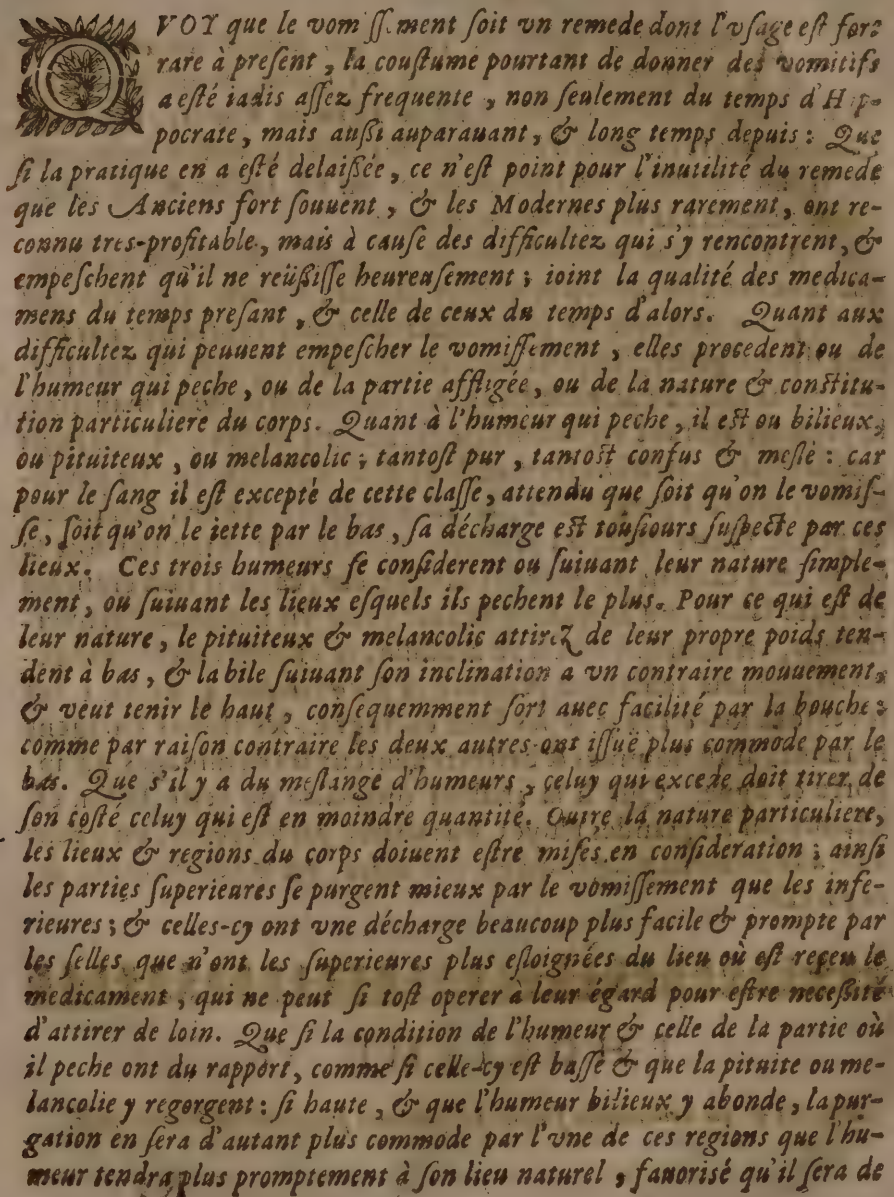 QVOY que le vomissement soit vn remede dont l'vsage est fort
rare à present, la coustume pourtant de donner des vomitifs
a esté iadis assez frequente, non seulement du temps d'Hip-
pocrate, mais aussi auparauant, & long temps depuis: Que
si la pratique en a esté delaissée, ce n'est point pour l'inutilité du remede
que les Anciens fort souuent, & les Modernes plus rarement, ont re-
connu tres-profitable, mais à cause des difficultez qui s'y rencontrent, &
empeschent qu'il ne reüssisse heureusement; ioint la qualité des medica-
mens du temps presant, & celle de ceux du temps d'alors. Quant aux
difficultez qui peuuent empescher le vomissement, elles procedent ou de
l'humeur qui peche, ou de la partie affligée, ou de la nature & constitu-
tion particuliere du corps. Quant à l'humeur qui peche, il est ou bilieux,
ou pituiteux, ou melancolic; tantost pur, tantost confus & meslé: car
pour le sang il est excepté de cette classe, attendu que soit qu'on le vomis-
se, soit qu'on le iette par le bas, sa décharge est tousiours suspecte par ces
lieux. Ces trois humeurs se considerent ou suiuant leur nature simple-
ment, ou suiuant les lieux esquels ils pechent le plus. Pour ce qui est de
leur nature, le pituiteux & melancolic attirez de leur propre poids ten-
dent à bas, & la bile suiuant son inclination a vn contraire mouuement,
& veut tenir le haut, consequemment sort auec facilité par la bouche:
comme par raison contraire les deux autres ont issuë plus commode par le
bas. Que s'il y a du meslange d'humeurs, celuy qui excede doit tirer de
son costé celuy qui est en moindre quantité. Outre la nature particuliere,
les lieux & regions du corps doiuent estre mises en consideration; ainsi
les parties superieures se purgent mieux par le vomissement que les infe-
rieures; & celles-cy ont vne décharge beaucoup plus facile & prompte par
les selles, que n'ont les superieures plus esloignées du lieu où est reçeu le
medicament, qui ne peut si tost operer à leur égard pour estre necessité
d'attirer de loin. Que si la condition de l'humeur & celle de la partie où
il peche ont du rapport, comme si celle-cy est basse & que la pituite ou me-
lancolie y regorgent: si haute, & que l'humeur bilieux y abonde, la pur-
gation en sera d'autant plus commode par l'vne de ces regions que l'hu-
meur tendra plus promptement à son lieu naturel, fauorisé qu'il sera de